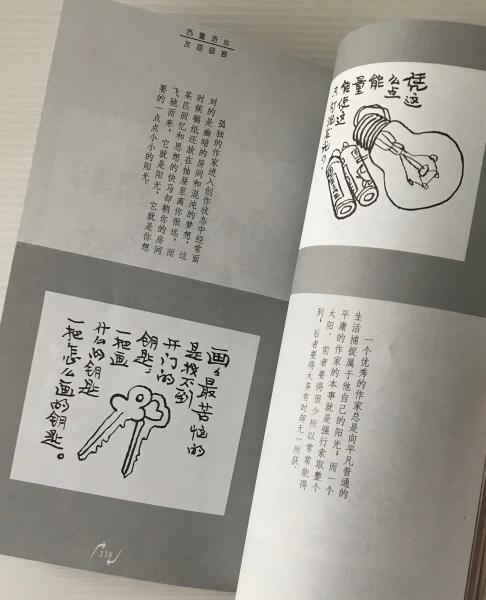 苏童语言
孤独的作家进入创作状态中经常面
对的是幽暗的房间和混沌的梦想,这
时候稿纸还放在抽屉里离你很远,而
某匹回忆和思想的快马却朝你的房间
飞驰而来,它就是阳光,它就是你想
要的一点点小小的阳光.
画々最苦恼的
是找不到
开门的
钥匙:
一把画
什么的钥匙
一把怎么画的钥匙。
118
凭这
么点
能
量
能使这
只灯泡发光
一个优秀的作家总是向平凡普通的
生活捕捉属于他自己的阳光;而一个
平庸的作家的本事就是强行索取整个
太阳.前者要得很少所以常常能得
到;后者要得太多有时却无一所获.